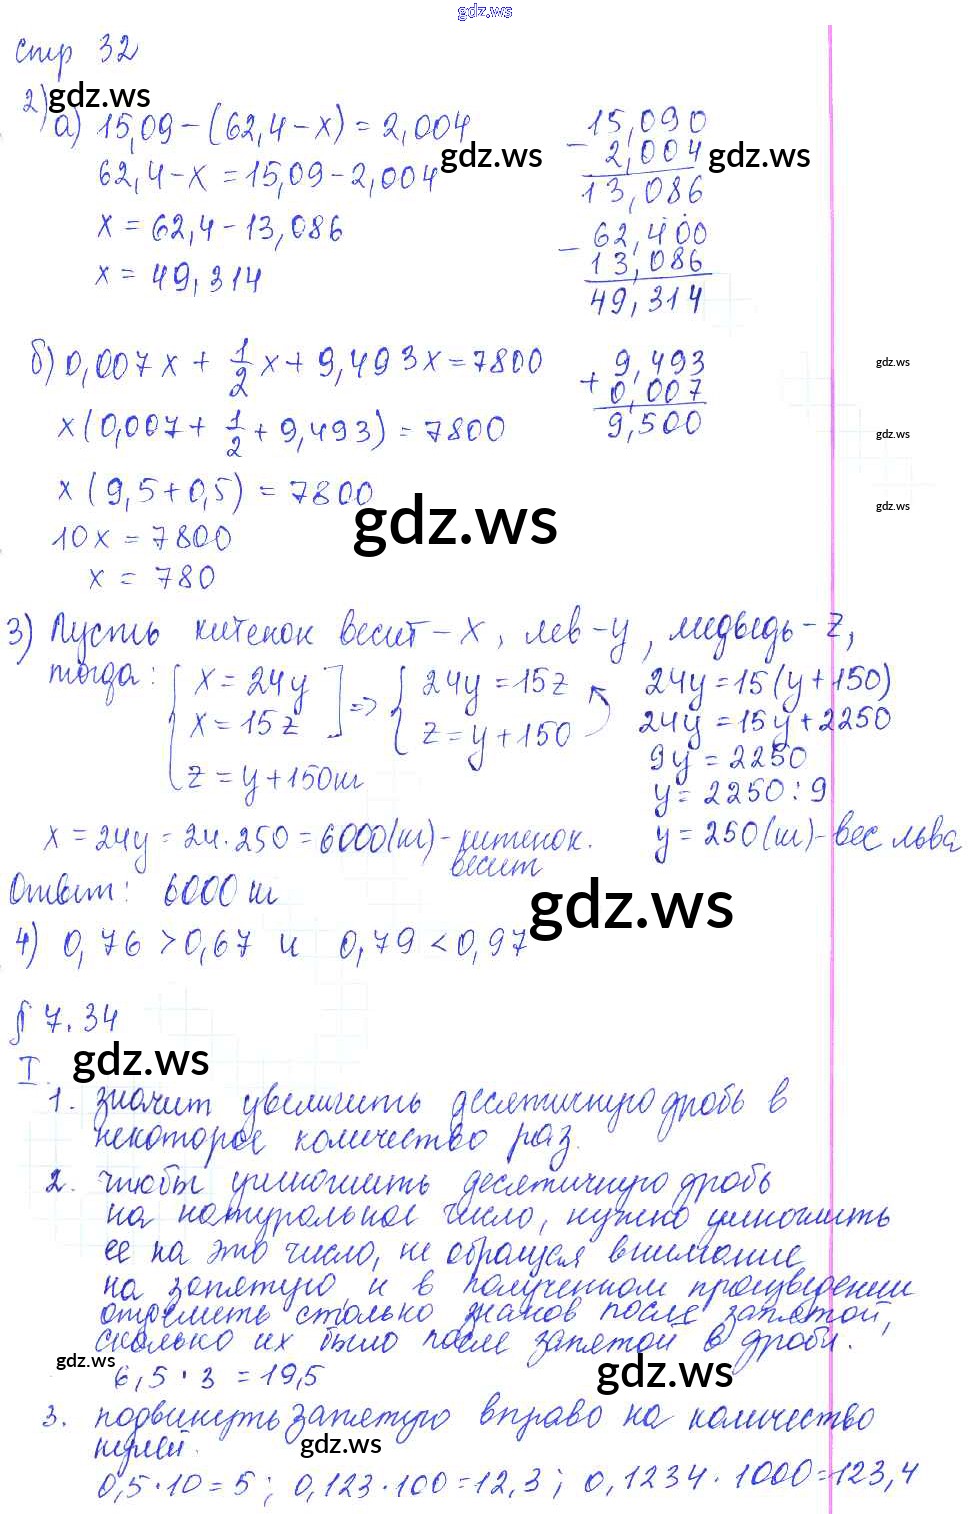 gdz.ws
стр 32
2) gdz.ws
а) 15,09 - (62,4 - x) = 2,004
62,4 - x = 15,09 - 2,004
x = 62,4 - 13,086
x = 49,314
gdz.ws
15,090
- 2,004
gdz.ws
13,086
- 62,400
13,086
49,314
б) 0,007x + 1/2 x + 9,493x = 7800
x(0,007 + 1/2 + 9,493) = 7800
x(9,5 + 0,5) = 7800
10x = 7800
x = 780
9,493
+ 0,007
9,500
gdz.ws
gdz.ws
gdz.ws
gdz.ws
3) Пусть китенок весит - x, лев - y, медведь - z,
тогда: { x = 24y
x = 15z
z = y + 150кг
] => { 24y = 15z
z = y + 150
24y = 15(y + 150)
24y = 15y + 2250
9y = 2250
y = 2250 : 9
y = 250(кг) - вес льва
x = 24y = 24 · 250 = 6000(кг) - китенок.
весит
Ответ: 6000 кг
gdz.ws
4) 0,76 > 0,67 и 0,79 < 0,97
§ 7.34
gdz.ws
I.
1. значит увеличить десятичную дробь в
некоторое количество раз.
2. чтобы умножить десятичную дробь
на натуральное число, нужно умножить
ее на это число, не обращая внимание
на запятую, и в полученном произведении
отделить столько знаков после запятой,
сколько их было после запятой в дроби.
gdz.ws
6,5 · 3 = 19,5
gdz.ws
3. подвинуть запятую вправо на количество
нулей.
gdz.ws
0,5 · 10 = 5; 0,123 · 100 = 12,3; 0,1234 · 1000 = 123,4